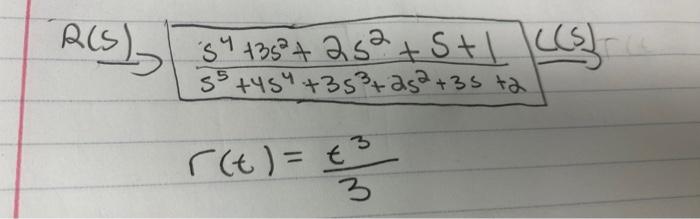 R(s) → s⁴ + 3s² + 2s² + s + 1 C(s)
s⁵ + 4s⁴ + 3s³ + 2s² + 3s + 2
r(t) = t³
3